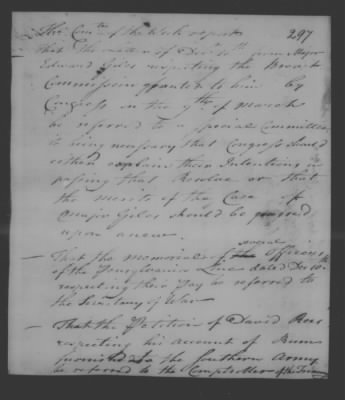 The Com.tee of the Week report 297
That the matter of Dec.r 10th from Major
Edward Giles respecting the Brevet
Commission granted to him by
Congress on the 9th of March
be referred to a special Committee,
it being necessary that Congress should
either explain their Intentions in
passing that Resolve or that
the merits of the Case of
Major Giles should be passed
upon anew.
several
— That the memorial of the Officers
of the Pennsylvania Line dated Dec 10th
respecting their Pay be referred to
the Secretary of War
— That the Petition of David Ross
respecting his account of Rum
furnished to the Southern Army
be referred to the Comptroller of the